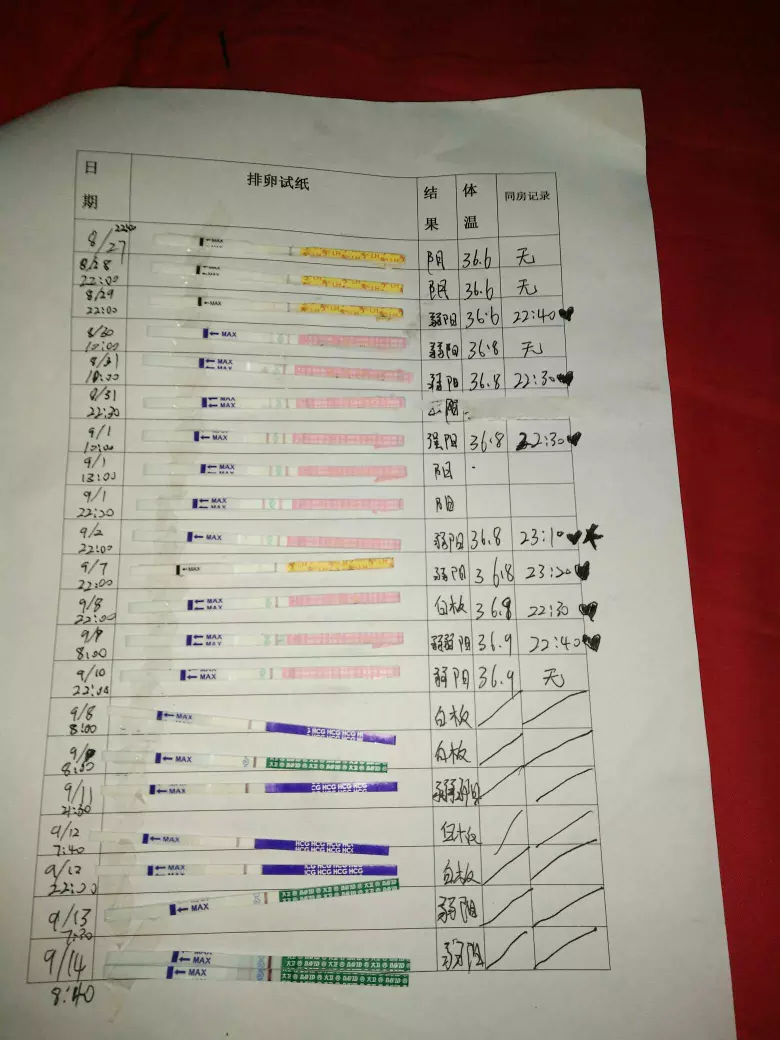 日期 排卵试纸 结果 体温 同房记录
8/27 22:00 MAX 阴 36.6 无
8/28 22:00 MAX 36.6 无
8/29 22:00 MAX 弱阳 36.6 22:40
8/30 10:00 MAX 弱阳 36.8 无
8/31 MAX 弱阳 36.8 22:30
8/31 22:30 MAX
9/1 10:00 MAX 强阳 36.8 22:30
9/1 13:00 MAX 阳
9/1 MAX 阳
9/2 22:00 MAX 弱阳 36.8 23:10
9/7 22:00 MAX 弱阳 36.8 23:20
9/8 22:00 MAX 白板 36.8 22:30
8:00 MAX 弱弱阳 36.9 22:40
9/10 22:00 MAX 弱阳 36.9 无
9/8 8:00 MAX HCG HCG HCG 白板
8:00 MAX 白板
9/11 MAX CG HCG HCG HCG
9/12 7:40 MAX HCG HCG HCG HCG 白板
9/12 22:00 MAX HCG HCG HCG 白板
9/13 7:30 MAX 弱阳
9/14 MAX 弱阳
8:40 MAX